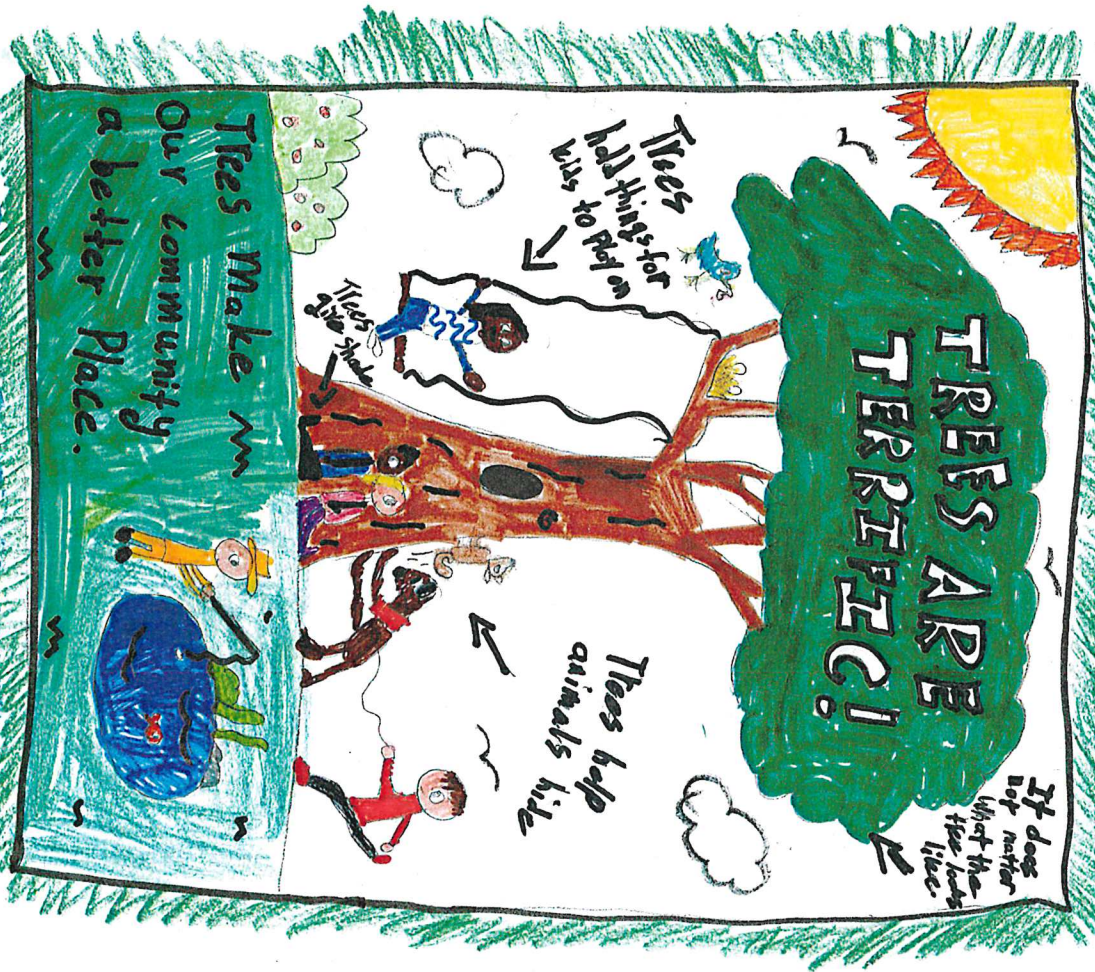 TREES ARE
TERRIFIC!
It does
not matter
what the
tree looks
like.
Trees
hold things for
kids to play on
Trees help
animals hide
Trees
give shade
Trees Make
Our community
a better Place.